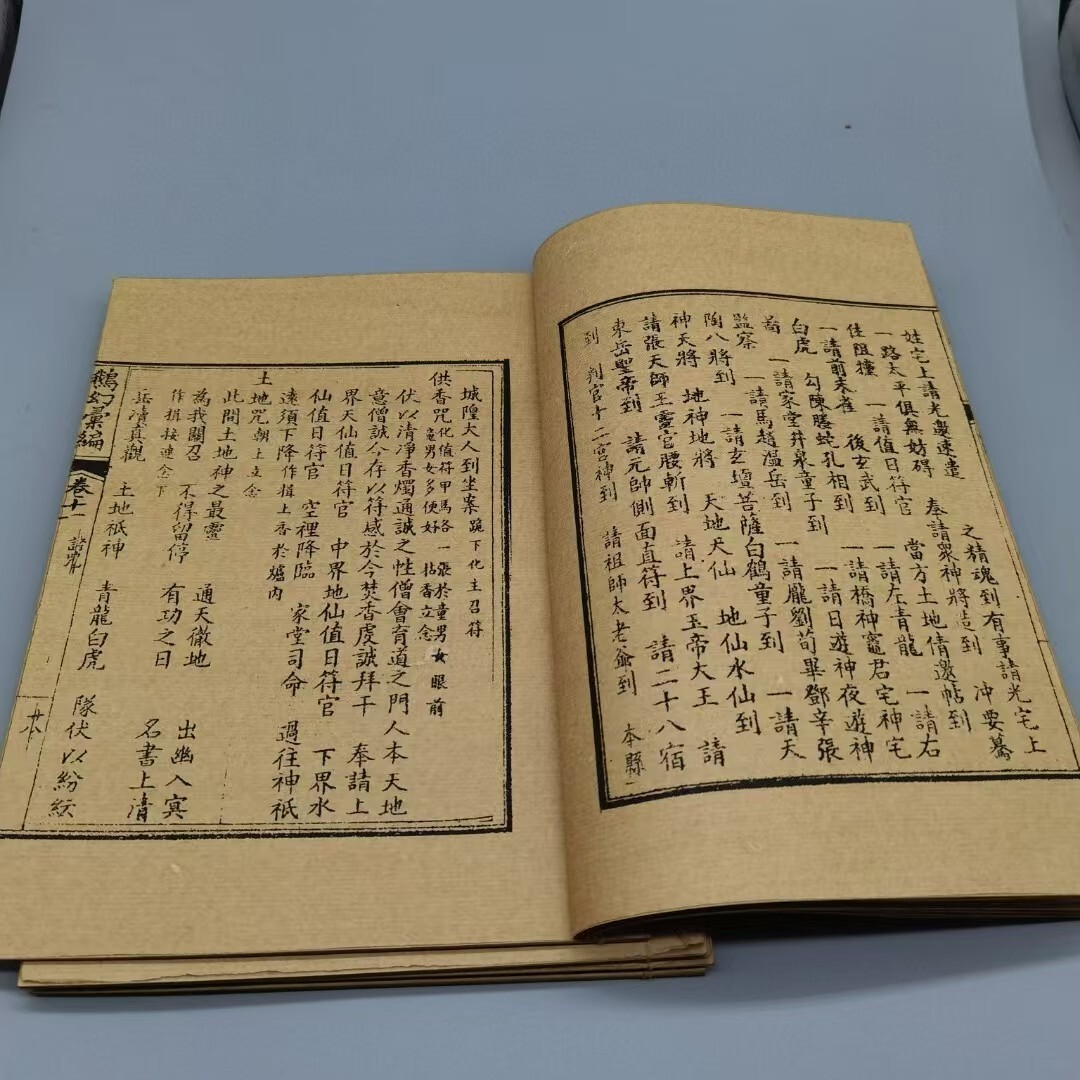 姓宅上請光邊速遣　之精魂到有事請光宅上
一路太平俱無妨碍　奉請眾神將造到　冲要驀
佳阻撞　一請值日符官　當方土地倩邀帖到
一請前朱雀　後玄武到　一請左青龍　一請右
白虎　勾陳騰蛇孔相到　一請橋神竈君宅神宅
一請家堂井泉童子到　一請日遊神夜遊神
一請馬趙溫岳到　一請龐劉荀畢鄧辛張
監察　一請玄壇菩薩白鶴童子到　一請天
陶八將到　地神地將　天地天仙　地仙水仙到
神天將　請上界玉帝大王　請
請張天師王靈官腰斬到　請二十八宿
東岳聖帝到　請元帥側面直符到
到　判官十二宮神到　請祖師太老爺到　本縣
城隍大人到坐案跪下化主召符
供香咒化值符甲馬各一張於童男女眼前
竜男女多便好　拈香立念
伏以清淨香燭通誠之性僧會育道之門人本天地
意僧誠今存以待感於今焚香虔誠拜干
界天仙值日符官　中界地仙值日符官　奉請上
仙值日符官　空裡降臨　家堂司命　下界水
遠須下降作揖上香於爐內　過往神祇
土
地咒朝上立念
此間土地神之最靈　通天徹地　出幽入冥
為我關召　不得留停　有功之日　名書上清
作揖接連念下
岳瀆真觀　土地祇神　青龍白虎　隊伏以紛紜
鵝幻彙編　卷十一